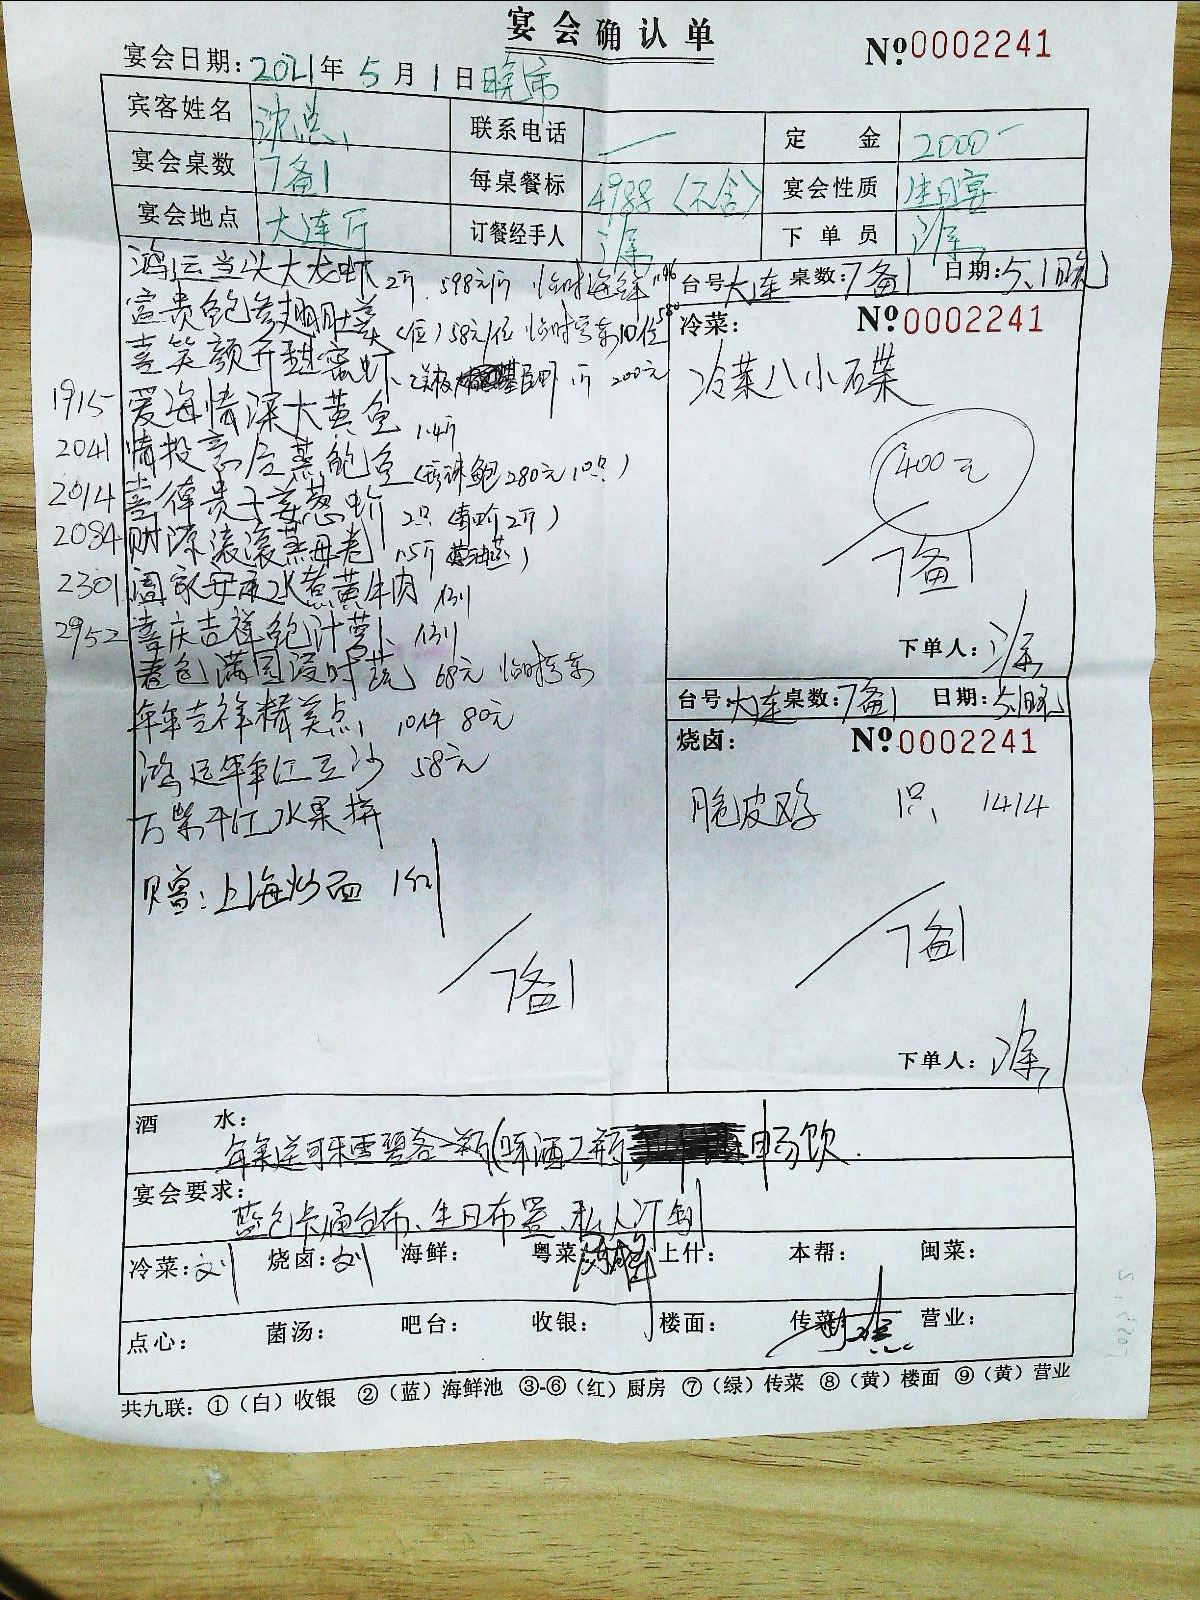 宴会确认单
№0002241
宴会日期:2021年5月1日晚市
宾客姓名 沈总 联系电话 — 定金 2000-
宴会桌数 7备1 每桌餐标 4988(不含) 宴会性质 生日宴
宴会地点 大连厅 订餐经手人 下单员
鸿运当头大龙虾 2斤 598元/斤 临时海鲜 1196
富贵鲍参翅肚羹(位)58元/位 10位 580
喜笑颜开 虾 1斤 200元
1915 爱海情深大黄鱼 1.4斤
2041 情投意 蒸鲍鱼(珍珠鲍280元10只)
2014 喜得贵子姜葱 2只 (2斤)
2084 财源滚滚蒸 卷 1.5斤
2301 阖家 水煮黄牛肉 1例
2952 喜庆吉祥鲍汁萝卜 1例
春色满园浸时蔬 68元
年年吉祥精美点 10件 80元
鸿运年年红豆沙 58元
万紫千红水果拼
赠:上海炒面 1例
7备1
台号:大连 桌数:7备1 日期:5.1晚
冷菜: №0002241
冷菜八小碟
400元
7备1
下单人:
台号:大连 桌数:7备1 日期:5.1晚
烧卤: №0002241
脆皮鸡 1只 1414
7备1
下单人:
酒水:
每桌送可乐雪碧各一瓶(啤酒 畅饮
宴会要求:
蓝色 台布、生日布置、私人订制
冷菜:刘 烧卤:刘 海鲜: 粤菜: 上什: 本帮: 闽菜:
点心: 菌汤: 吧台: 收银: 楼面: 传菜: 营业:
共九联:①(白)收银 ②(蓝)海鲜池 ③-⑥(红)厨房 ⑦(绿)传菜 ⑧(黄)楼面 ⑨(黄)营业